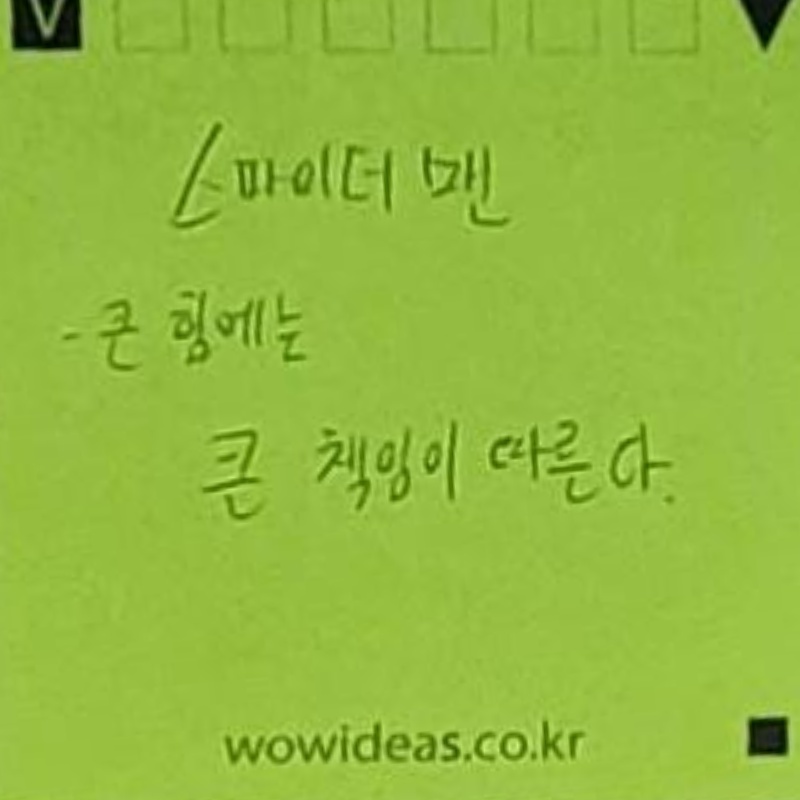 V
스파이더 맨
- 큰 힘에는
큰 책임이 따른다.
wowideas.co.kr